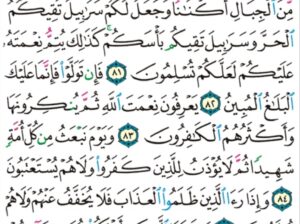 مِّنَ ٱلْجِبَالِ أَكْنَٰنًا وَجَعَلَ لَكُمْ سَرَٰبِيلَ تَقِيكُمُ
ٱلْحَرَّ وَسَرَٰبِيلَ تَقِيكُم بَأْسَكُمْ ۚ كَذَٰلِكَ يُتِمُّ نِعْمَتَهُۥ
عَلَيْكُمْ لَعَلَّكُمْ تُسْلِمُونَ ٨١ فَإِن تَوَلَّوْا۟ فَإِنَّمَا عَلَيْكَ
ٱلْبَلَٰغُ ٱلْمُبِينُ ٨٢ يَعْرِفُونَ نِعْمَتَ ٱللَّهِ ثُمَّ يُنكِرُونَهَا
وَأَكْثَرُهُمُ ٱلْكَٰفِرُونَ ٨٣ وَيَوْمَ نَبْعَثُ مِن كُلِّ أُمَّةٍ
شَهِيدًا ثُمَّ لَا يُؤْذَنُ لِلَّذِينَ كَفَرُوا۟ وَلَا هُمْ يُسْتَعْتَبُونَ
٨٤ وَإِذَا رَءَا ٱلَّذِينَ ظَلَمُوا۟ ٱلْعَذَابَ فَلَا يُخَفَّفُ عَنْهُمْ وَلَا هُمْ